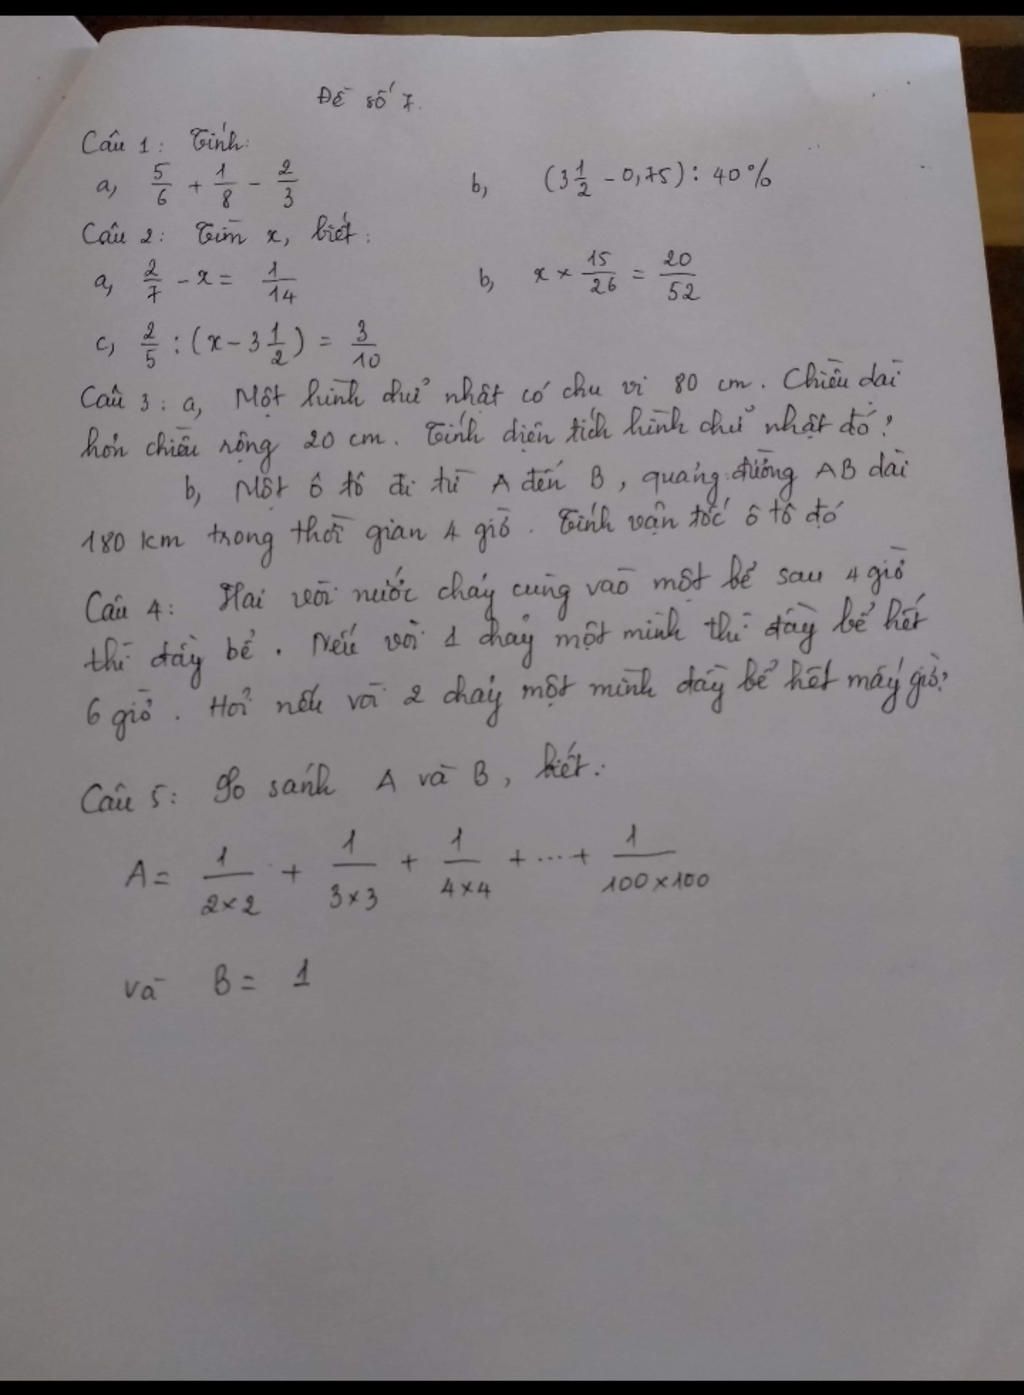 Đề số 7.
Câu 1: Tính:
a, 5/6 + 1/8 - 2/3 b, (3 1/2 - 0,75) : 40%
Câu 2: Tìm x, biết:
a, 2/7 - x = 1/14 b, x × 15/26 = 20/52
c, 2/5 : (x - 3 1/2) = 3/10
Câu 3: a, Một hình chữ nhật có chu vi 80 cm. Chiều dài
hơn chiều rộng 20 cm. Tính diện tích hình chữ nhật đó?
b, Một ô tô đi từ A đến B, quãng đường AB dài
180 km trong thời gian 4 giờ. Tính vận tốc ô tô đó
Câu 4: Hai vòi nước chảy cùng vào một bể sau 4 giờ
thì đầy bể. Nếu vòi 1 chảy một mình thì đầy bể hết
6 giờ. Hỏi nếu vòi 2 chảy một mình đầy bể hết mấy giờ?
Câu 5: So sánh A và B, biết:
A = 1/(2×2) + 1/(3×3) + 1/(4×4) + ... + 1/(100×100)
và B = 1